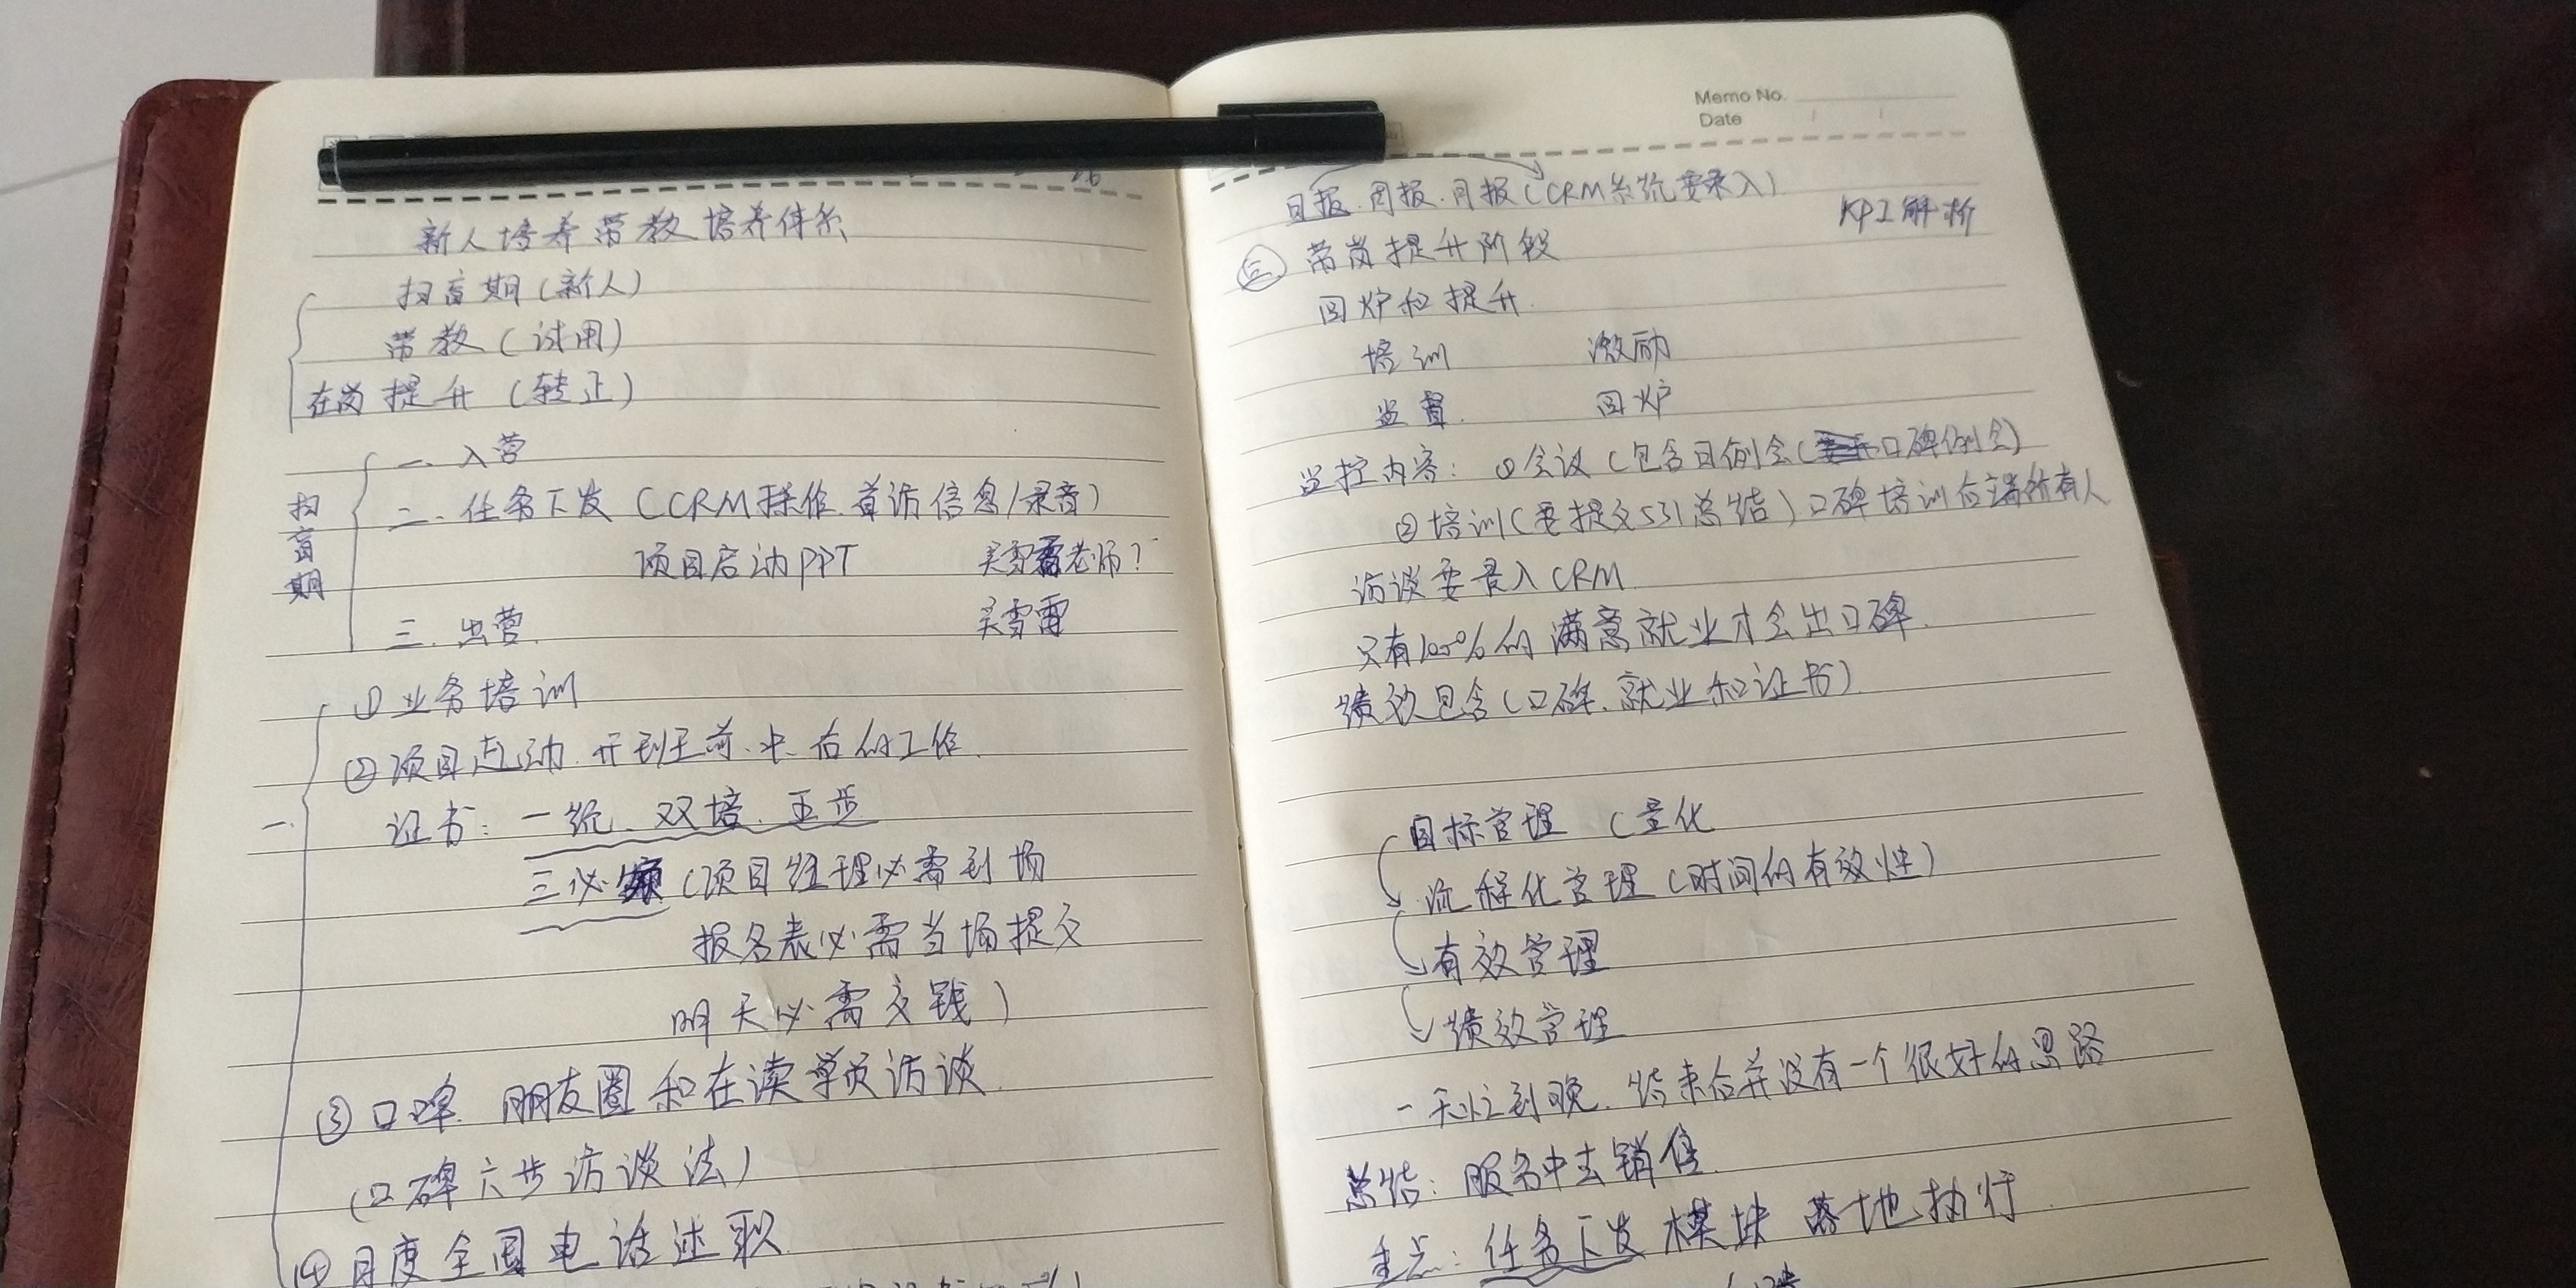 新人培养带教培养体系
扫盲期(新人)
带教(试用)
在岗提升(转正)
扫盲期
一、入营
二、任务下发(CRM操作、首访信息/录音)
项目启动PPT 吴雪雷老师?
三、出营 吴雪雷
一、
①业务培训
②项目启动、开到王前、中、右的工作.
证书:一统、双培、五步
三必须(项目经理必需到场
报名表必需当场提交
明天必需交钱)
③口碑 朋友圈和在读学员访谈.
(口碑六步访谈法)
④月度全国电话述职
Memo No.
Date
日报.周报.月报(CRM系统要录入)
KPI解析
三 带岗提升阶段
回炉和提升.
培训 激励
监督. 回炉
监控内容:①会议(包含日例会(口碑例会)
②培训(要提交531总结)口碑培训后端所有人
访谈要录入CRM
只有100%的满意就业才会出口碑.
绩效包含(口碑.就业和证书)
目标管理(量化
流程化管理(时间的有效性)
有效管理
绩效管理
一天忙到晚.结束后并没有一个很好的思路
总结:服务中去销售.
重点:任务下发模块 落地执行